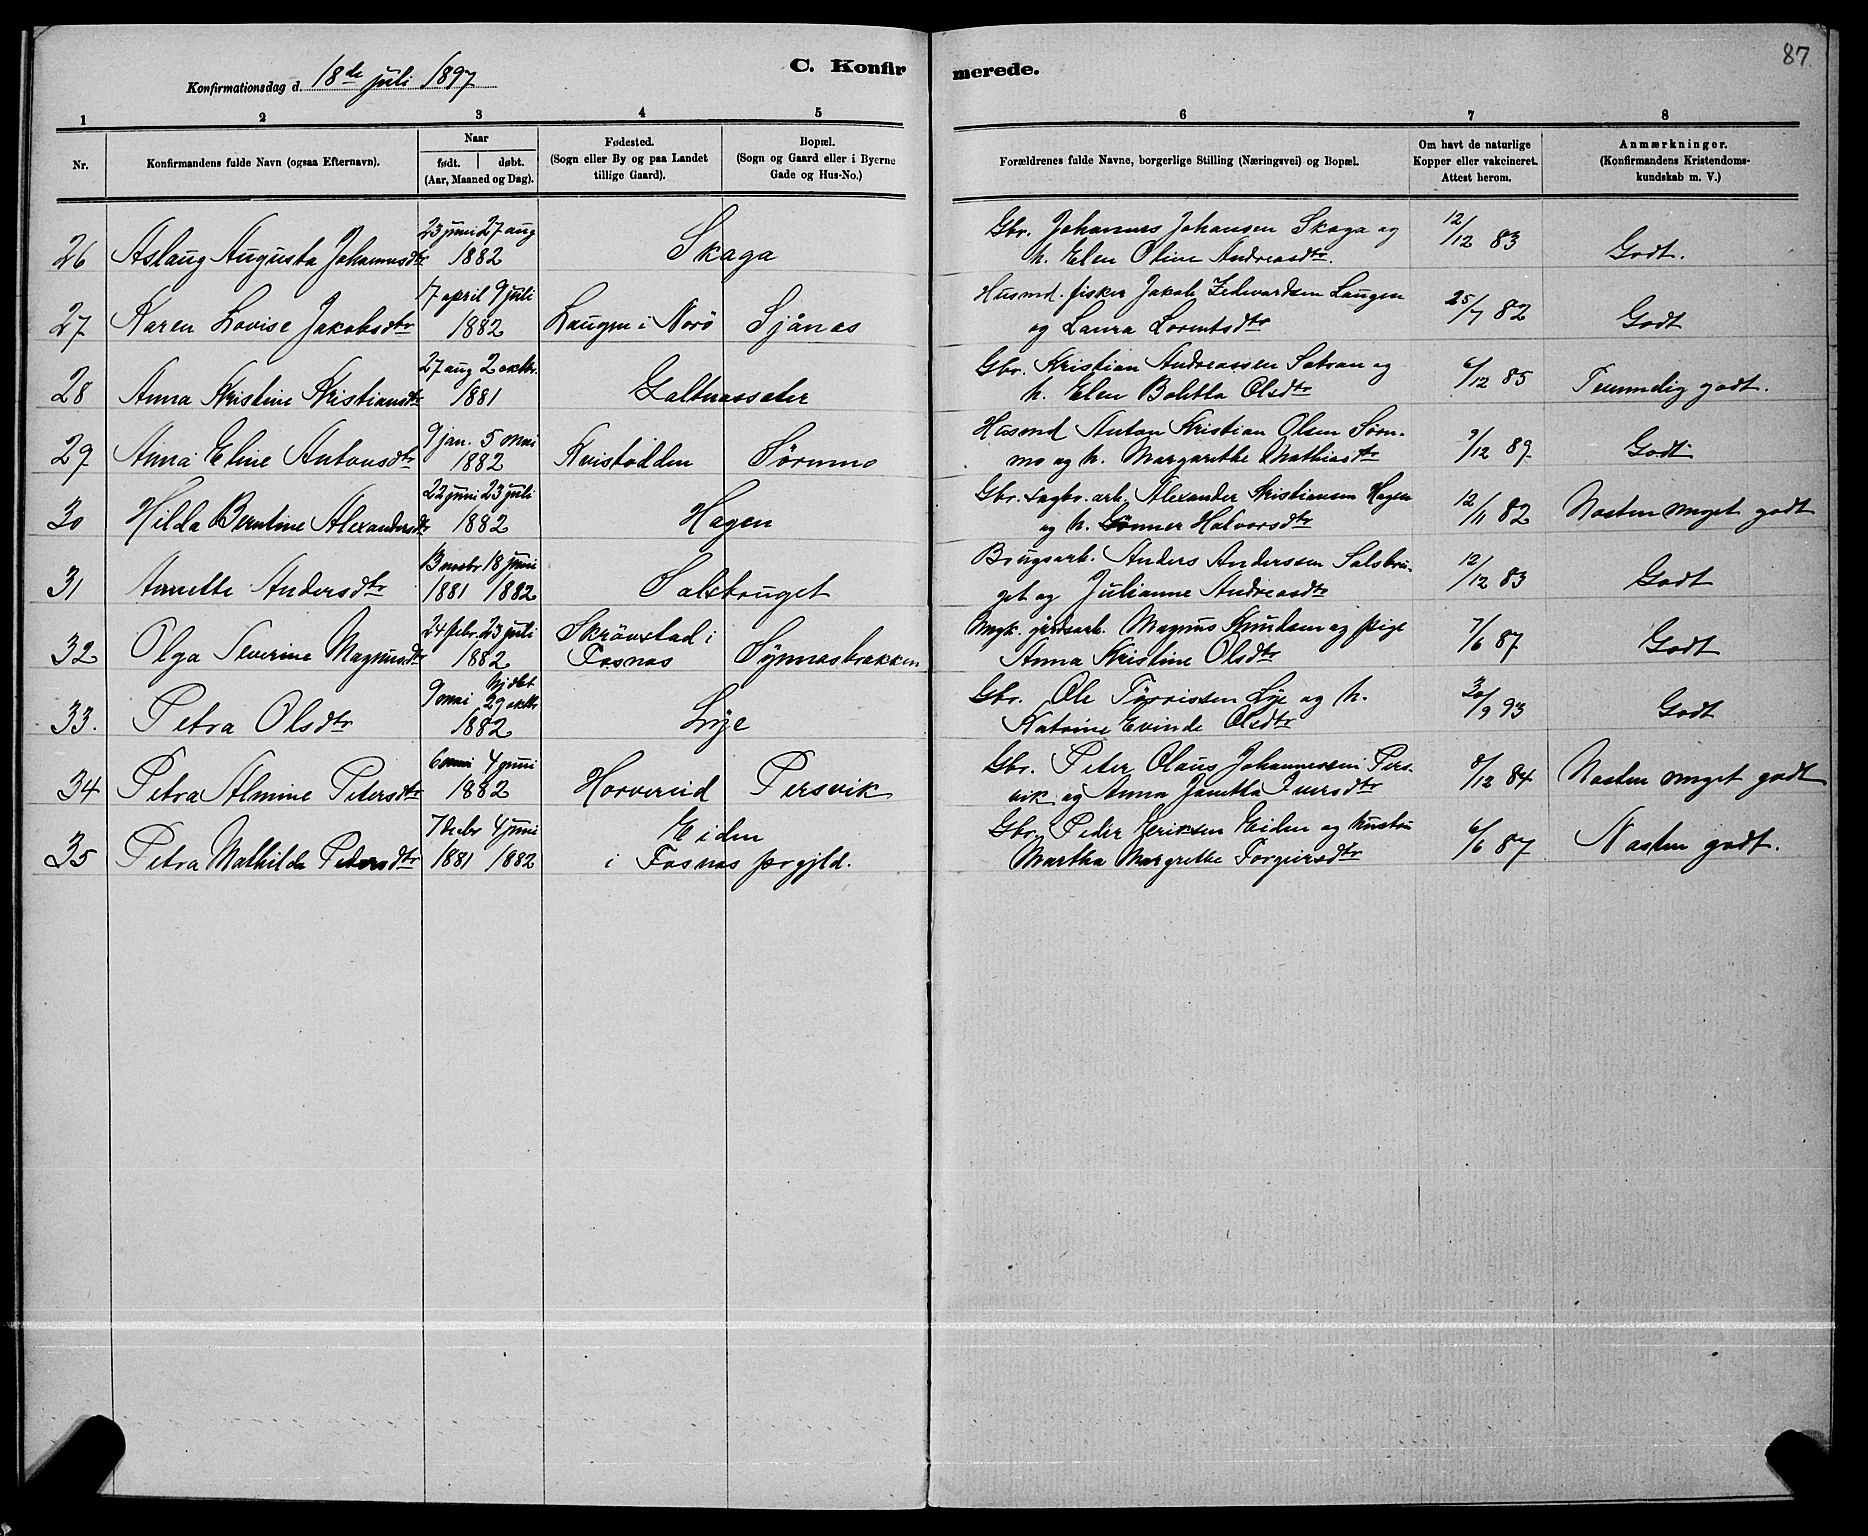 87
Konfirmationsdag d. 18de juli 1897
C. Konfirmerede.
1 2 3 4 5 6 7 8
Nr.
Konfirmandens fulde Navn (ogsaa Efternavn).
Naar
født. døbt.
(Aar, Maaned og Dag).
Fødested.
(Sogn eller By og paa Landet
tillige Gaard).
Bopæl.
(Sogn og Gaard eller i Byerne
Gade og Hus-No.)
Forældrenes fulde Navne, borgerlige Stilling (Næringsvei) og Bopæl.
Om havt de naturlige
Kopper eller vakcineret.
Attest herom.
Anmærkninger.
(Konfirmandens Kristendoms-
kundskab m. V.)
23 juni 27 aug Gbr. Johannes Johansen Skaga og 12/12 83
26 Aslaug Augusta Johannesdtr 1882 Skaga h. Elen Oline Andreasdtr. Godt.
17 april 9 juli Husmd. fisker Jakob Edvardsen Laugen 25/7 82
27 Karen Lovise Jakobsdtr 1882 Laugen i Norö Sjånes og Laura Lorntsdtr Godt
27 aug 2 oktbr. Gbr. Kristian Andreassen Satran og 6/12 85
28 Anna Kristine Kristiansdtr 1881 Galtnessæter h. Elen Boletta Olsdtr Temmelig godt.
9 jan. 5 mai Husmd Anton Kristian Olsen Sörn- 9/12 89
29 Anna Eline Antonsdtr 1882 Kvistodden Sörnmo mo og h. Margarethe Mathiasdtr Godt
22 juni 23 juli Gbr. Sagbr. arb. Alexander Kristiansen Hagen 12/11 82
30 Hilda Berntine Alexandersdtr 1882 Hagen og h. Gunner Halvorsdtr Næsten meget godt
13 novbr 18 juni Brugsarb. Anders Anderssen Salsbru- 12/12 83
31 Annette Andersdtr 1881 1882 Salsbruget get og Julianne Andreasdtr Godt
24 febr. 23 juli Skrövstad i Ungk. jordarb. Magnus Knudsen og pige 7/6 87
32 Olga Severine Magnusdtr 1882 Fosnes Synnesbækken Anna Kristine Olsdtr Godt
9 mai hjdbt 29 oktbr Gbr. Ole Törrissen Lye og h. 30/9 93
33. Petra Olsdtr 1882 Lye Katrine Evinde Olsdtr Godt
6 mai 4 juni Gbr. Peter Olaus Johannessen Pers- 8/12 84
34 Petra Almine Petersdtr 1882 Horvereid Persvik vik og Anna Janetta Iversdtr Næsten meget godt
7 decbr 4 juni Eiden Gbr. Peder Jeriksen Eiden og hustru 6/6 87
35 Petra Mathilde Petersdtr 1881 1882 i Fosnes prgjld. Martha Margrethe Torgersdtr Næsten godt.